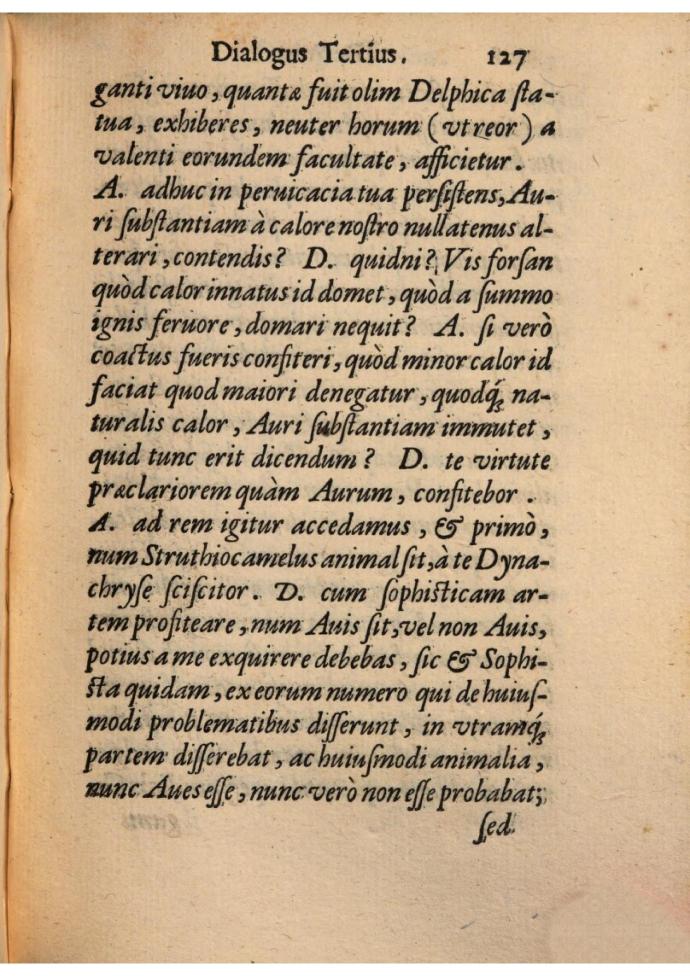 Dialogus Tertius. 127
ganti viuo, quantæ fuit olim Delphica ſta-
tua, exhiberes, neuter horum (vt reor) a
valenti eorundem facultate, afficietur.
A. adhuc in peruicacia tua perſiſtens, Au-
ri ſubſtantiam à calore noſtro nullatenus al-
terari, contendis? D. quidni? Vis forſan
quòd calor innatus id domet, quòd a ſummo
ignis feruore, domari nequit? A. ſi verò
coactus fueris confiteri, quòd minor calor id
faciat quod maiori denegatur, quodq́ꝫ na-
turalis calor, Auri ſubſtantiam immutet,
quid tunc erit dicendum? D. te virtute
præclariorem quàm Aurum, confitebor.
A. ad rem igitur accedamus, & primò,
num Struthiocamelus animal ſit, à te Dyna-
chryſe ſciſcitor. D. cum ſophiſticam ar-
tem profiteare, num Auis ſit, vel non Auis,
potius a me exquirere debebas, ſic & Sophi-
ſta quidam, ex eorum numero qui de huiuſ-
modi problematibus diſſerunt, in vtramq́ꝫ
partem diſſerebat, ac huiuſmodi animalia,
nunc Aues eſſe, nunc verò non eſſe probabat;
ſed